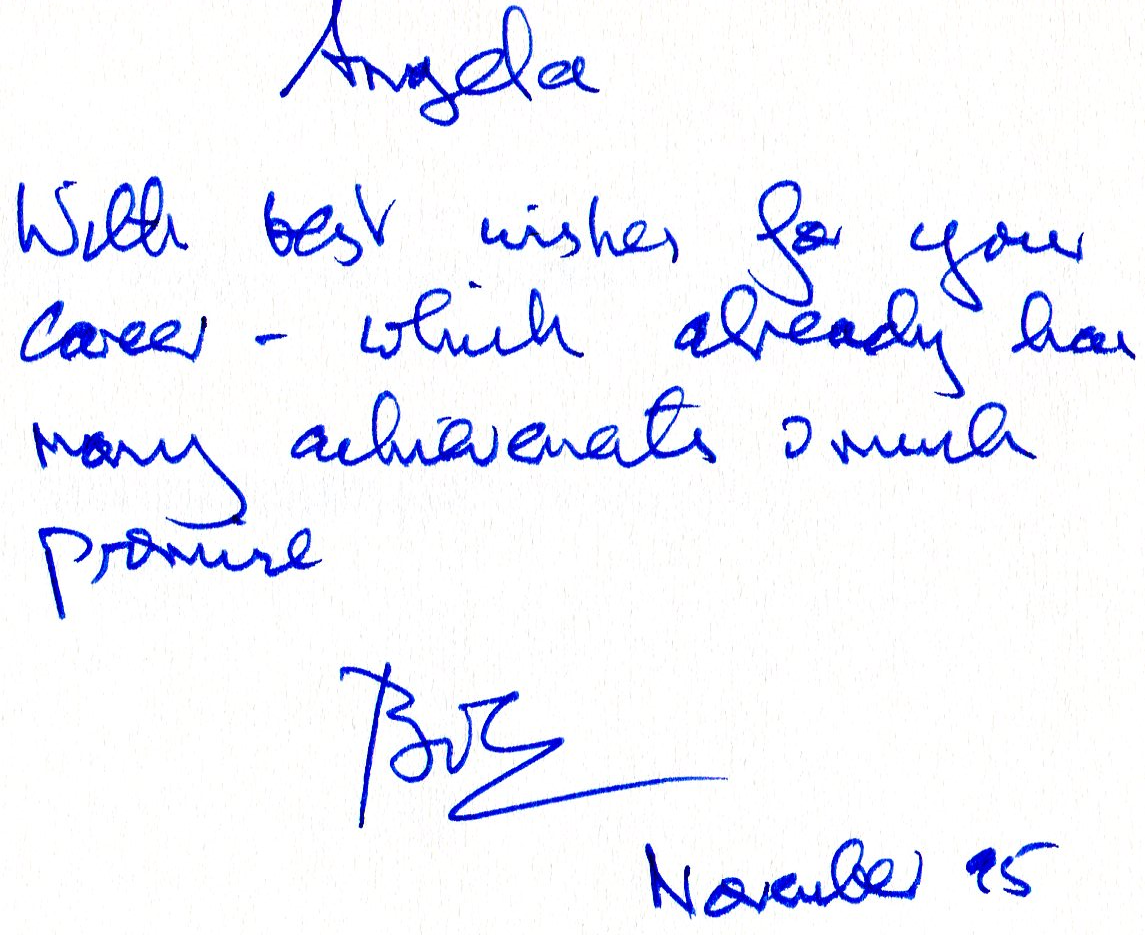 Angela
With best wishes for your
career - which already has
many achievements & much
promise
Bob
November 95